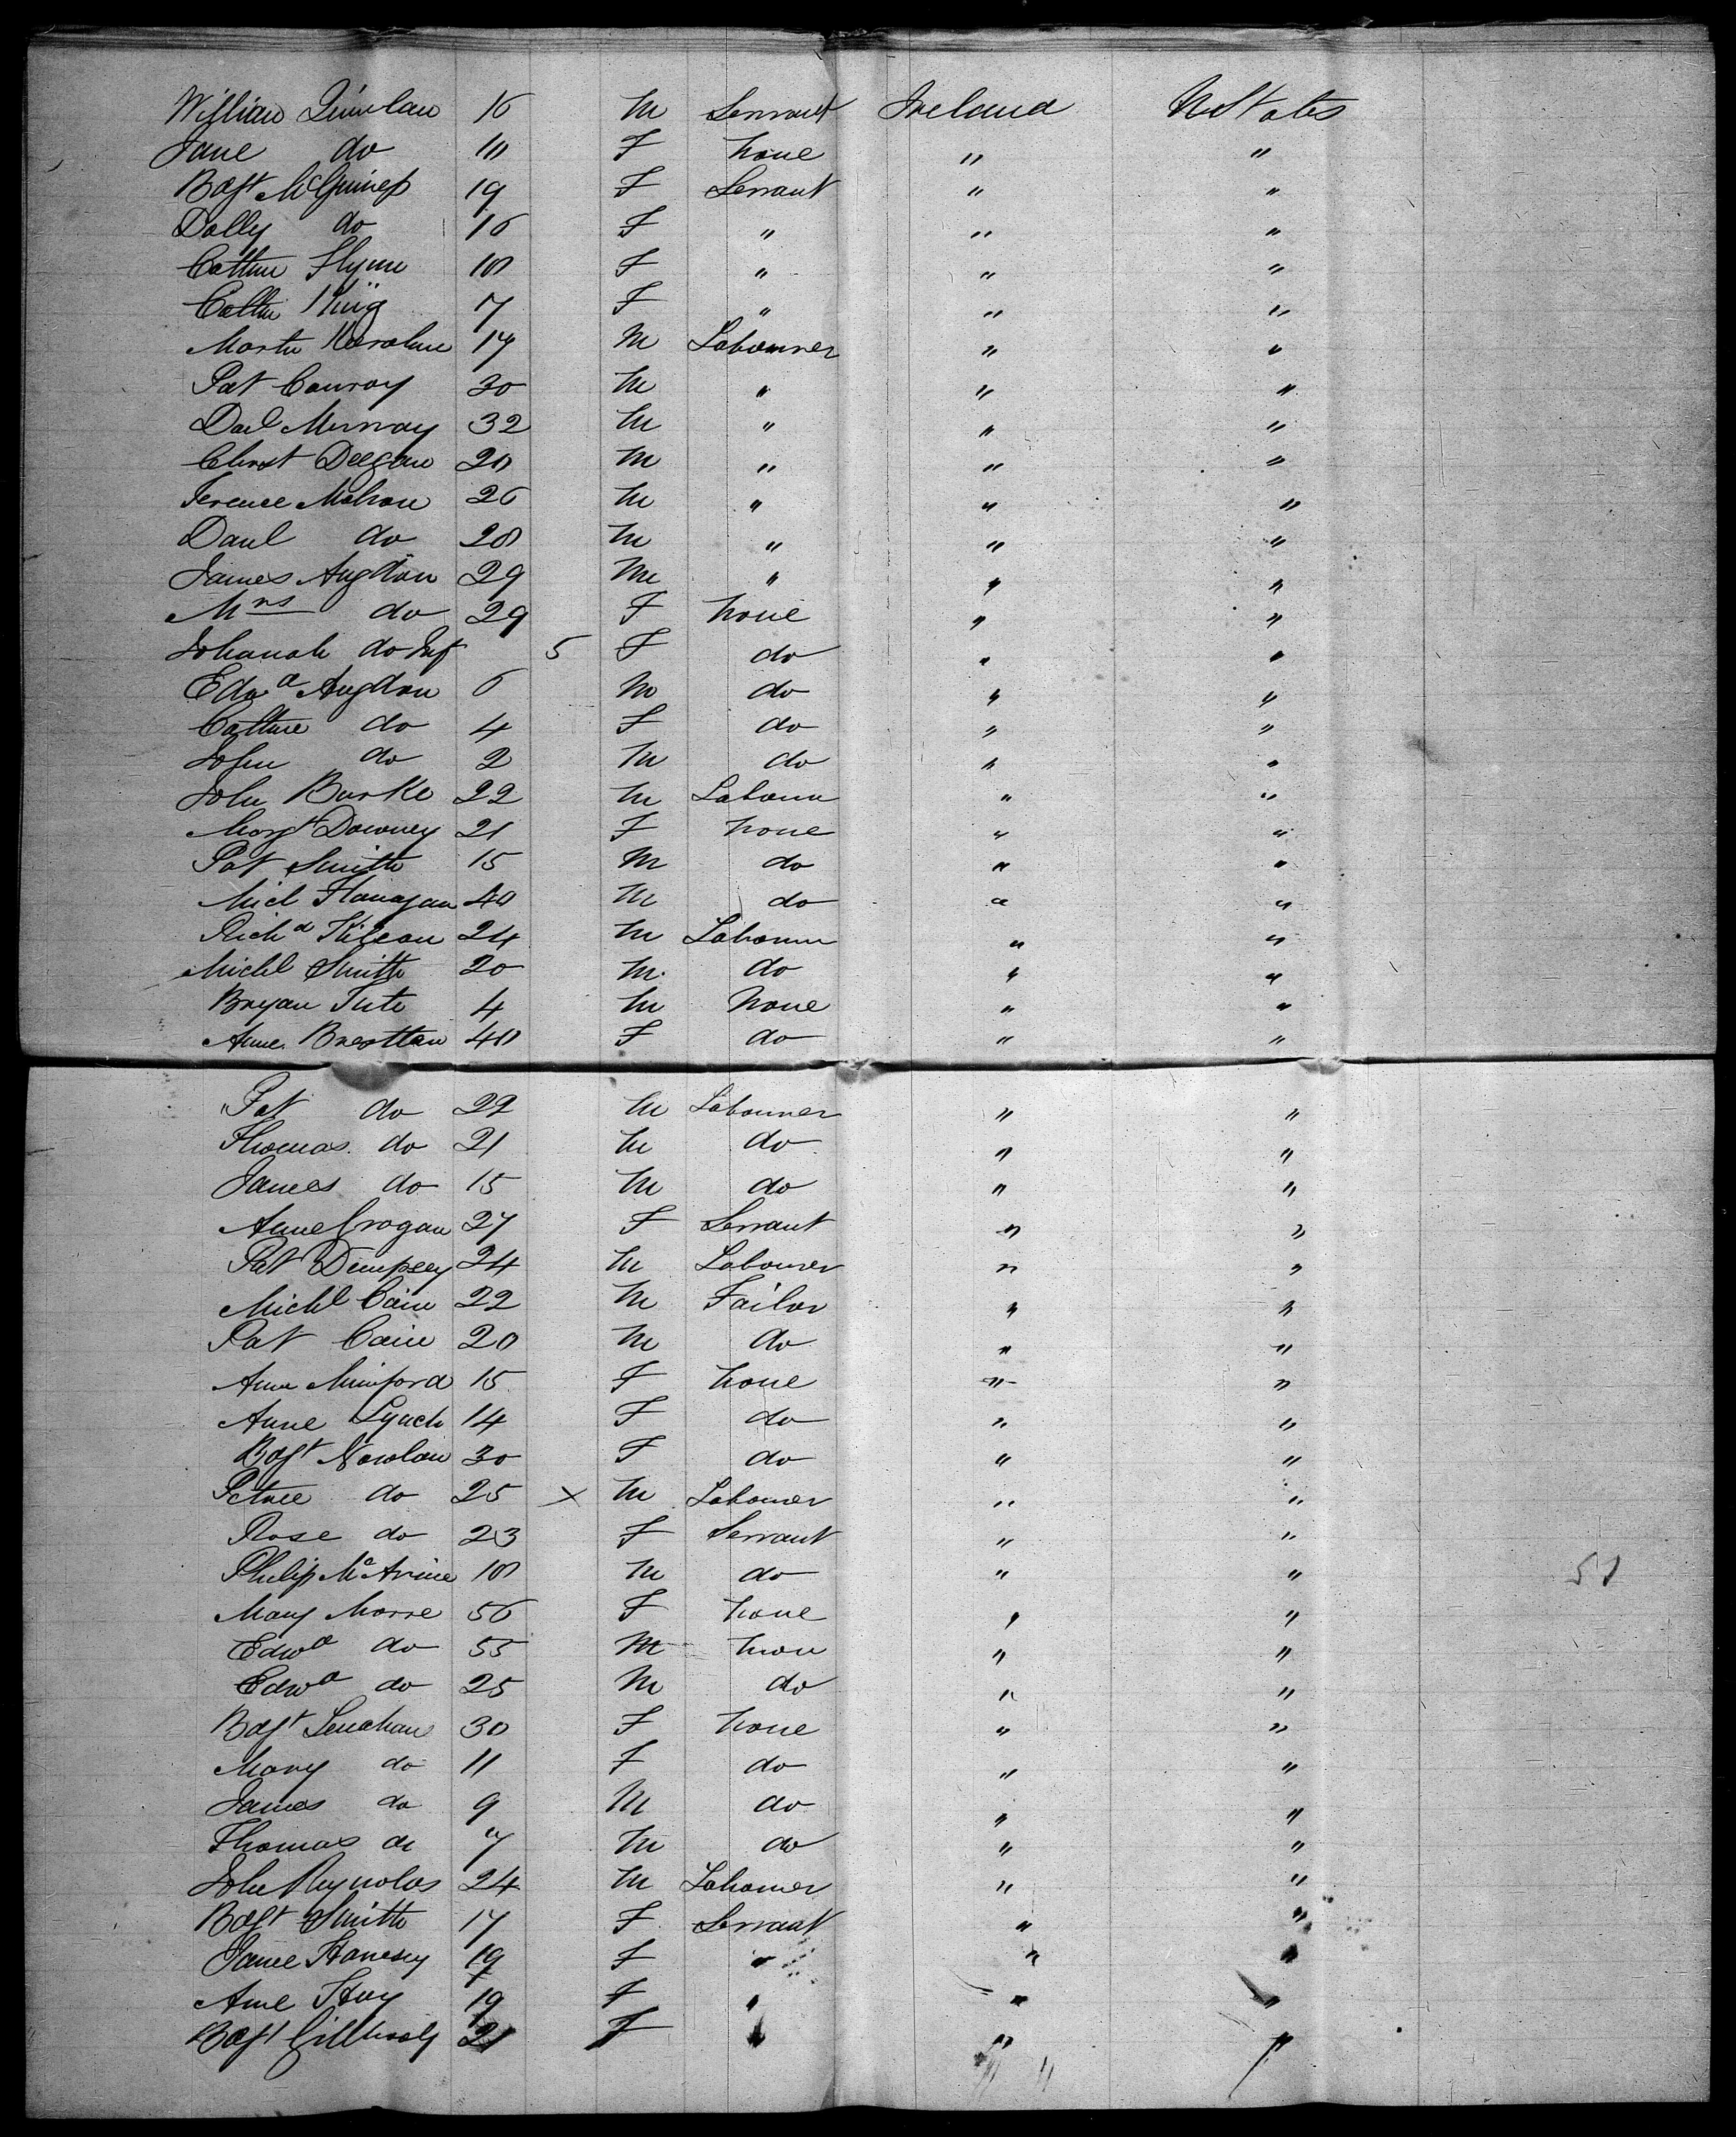 William Quinlan 16 M Servant Ireland U States
Jane do 10 F None " "
Bdgt McGuiness 19 F Servant " "
Dolly do 16 F " " "
Cathne Flynn 18 F " " "
Cathe King 7 F " " "
Martn 17 M Labourer " "
Pat Conroy 30 M " " "
Danl Murray 32 M " " "
Christ Deegan 20 M " " "
Terence Mahon 26 M " " "
Danl do 20 M " " "
James Anglton 29 M " " "
Mrs do 29 F None " "
Johanah do Inf 5 F do " "
Edwd Anglton 6 M do " "
Cathne do 4 F do " "
John do 2 M do " "
John Burke 22 M Labourer " "
Margt Downey 21 F None " "
Pat Smith 15 M do " "
Micl Flanagan 40 M do " "
Richd Kilean 24 M Labourer " "
Michl Smith 20 M do " "
Bryan Tute 4 M None " "
Anne Brestlan 40 F do " "
Pat do 22 M Labourer " "
Thomas do 21 M do " "
James do 15 M do " "
Anne Grogan 27 F Servant " "
Pat Dempsey 24 M Labourer " "
Michl Cain 22 M Tailor " "
Pat Cain 20 M do " "
Anne Munford 15 F None " "
Anne Lynch 14 F do " "
Bdgt Nowlan 30 F do " "
do 25 x M Labourer " "
Rose do 23 F Servant " "
Philip Mc Avine 18 M do " "
Mary Morre 56 F None " "
Edwd do 55 M None " "
Edwd do 25 M do " "
Bdgt Lenahan 30 F None " "
Mary do 11 F do " "
James do 9 M do " "
Thomas do 7 M do " "
John Reynolds 24 M Labourer " "
Bdgt Smith 17 F Servant " "
Jane 19 F " " "
Anne Hoy 19 F " " "
Bdgt Gillhooly 21 F " " "
51